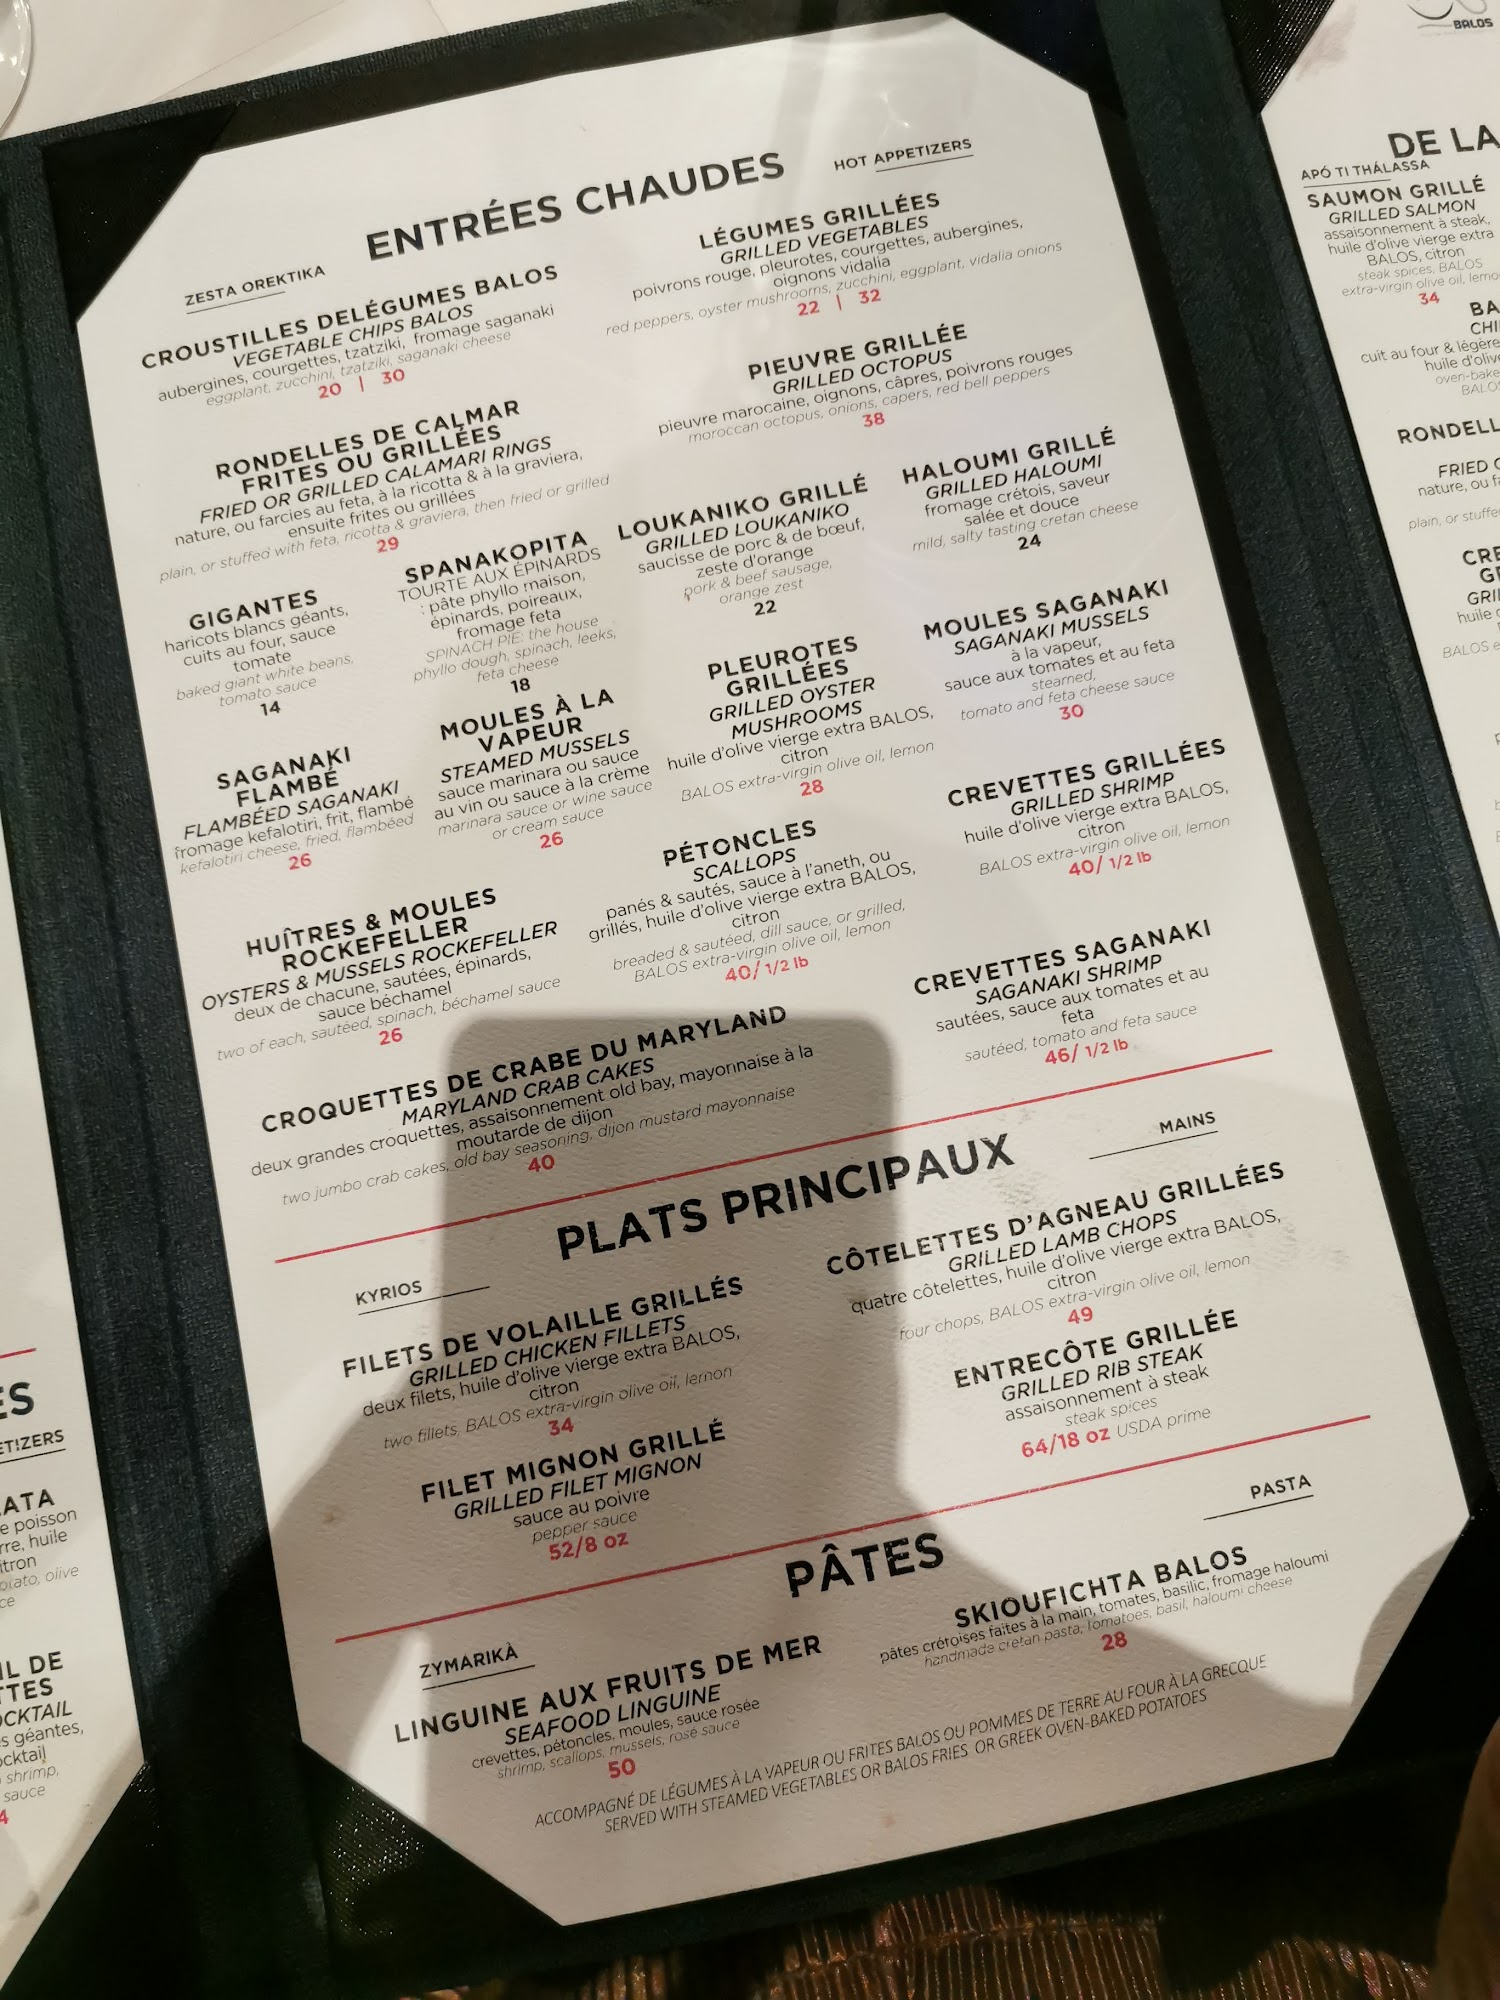 ENTRÉES CHAUDES
HOT APPETIZERS
ZESTA OREKTIKA
CROUSTILLES DELÉGUMES BALOS
VEGETABLE CHIPS BALOS
aubergines, courgettes, tzatziki, fromage saganaki
eggplant, zucchini, tzatziki, saganaki cheese
20 | 30
LÉGUMES GRILLÉES
GRILLED VEGETABLES
poivrons rouge, pleurotes, courgettes, aubergines,
oignons vidalia
red peppers, oyster mushrooms, zucchini, eggplant, vidalia onions
22 | 32
RONDELLES DE CALMAR
FRITES OU GRILLÉES
FRIED OR GRILLED CALAMARI RINGS
nature, ou farcies au feta, à la ricotta & à la graviera,
ensuite frites ou grillées
plain, or stuffed with feta, ricotta & graviera, then fried or grilled
29
PIEUVRE GRILLÉE
GRILLED OCTOPUS
pieuvre marocaine, oignons, câpres, poivrons rouges
moroccan octopus, onions, capers, red bell peppers
38
GIGANTES
haricots blancs géants,
cuits au four, sauce
tomate
baked giant white beans,
tomato sauce
14
SPANAKOPITA
TOURTE AUX ÉPINARDS
: pâte phyllo maison,
épinards, poireaux,
fromage feta
SPINACH PIE: the house
phyllo dough, spinach, leeks,
feta cheese
18
LOUKANIKO GRILLÉ
GRILLED LOUKANIKO
saucisse de porc & de bœuf,
zeste d'orange
pork & beef sausage,
orange zest
22
HALOUMI GRILLÉ
GRILLED HALOUMI
fromage crétois, saveur
salée et douce
mild, salty tasting cretan cheese
24
SAGANAKI
FLAMBÉ
FLAMBÉED SAGANAKI
fromage kefalotiri, frit, flambé
kefalotiri cheese, fried, flambéed
26
MOULES À LA
VAPEUR
STEAMED MUSSELS
sauce marinara ou sauce
au vin ou sauce à la crème
marinara sauce or wine sauce
or cream sauce
26
PLEUROTES
GRILLÉES
GRILLED OYSTER
MUSHROOMS
huile d'olive vierge extra BALOS,
citron
BALOS extra-virgin olive oil, lemon
28
MOULES SAGANAKI
SAGANAKI MUSSELS
à la vapeur,
sauce aux tomates et au feta
steamed,
tomato and feta cheese sauce
30
HUÎTRES & MOULES
ROCKEFELLER
OYSTERS & MUSSELS ROCKEFELLER
deux de chacune, sautées, épinards,
sauce béchamel
two of each, sautéed, spinach, béchamel sauce
26
PÉTONCLES
SCALLOPS
panés & sautés, sauce à l'aneth, ou
grillés, huile d'olive vierge extra BALOS,
citron
breaded & sautéed, dill sauce, or grilled,
BALOS extra-virgin olive oil, lemon
40/ 1/2 lb
CREVETTES GRILLÉES
GRILLED SHRIMP
huile d'olive vierge extra BALOS,
citron
BALOS extra-virgin olive oil, lemon
40/ 1/2 lb
CROQUETTES DE CRABE DU MARYLAND
MARYLAND CRAB CAKES
deux grandes croquettes, assaisonnement old bay, mayonnaise à la
moutarde de dijon
two jumbo crab cakes, old bay seasoning, dijon mustard mayonnaise
40
CREVETTES SAGANAKI
SAGANAKI SHRIMP
sautées, sauce aux tomates et au
feta
sautéed, tomato and feta sauce
46/ 1/2 lb
PLATS PRINCIPAUX
MAINS
KYRIOS
FILETS DE VOLAILLE GRILLÉS
GRILLED CHICKEN FILLETS
deux filets, huile d'olive vierge extra BALOS,
citron
two fillets, BALOS extra-virgin olive oil, lemon
34
CÔTELETTES D'AGNEAU GRILLÉES
GRILLED LAMB CHOPS
quatre côtelettes, huile d'olive vierge extra BALOS,
citron
four chops, BALOS extra-virgin olive oil, lemon
49
FILET MIGNON GRILLÉ
GRILLED FILET MIGNON
sauce au poivre
pepper sauce
52/8 oz
ENTRECÔTE GRILLÉE
GRILLED RIB STEAK
assaisonnement à steak
steak spices
64/18 oz USDA prime
PÂTES
PASTA
ZYMARIKÀ
LINGUINE AUX FRUITS DE MER
SEAFOOD LINGUINE
crevettes, pétoncles, moules, sauce rosée
shrimp, scallops, mussels, rosé sauce
50
SKIOUFICHTA BALOS
pâtes crétoises faites à la main, tomates, basilic, fromage haloumi
handmade cretan pasta, tomatoes, basil, haloumi cheese
28
ACCOMPAGNÉ DE LÉGUMES À LA VAPEUR OU FRITES BALOS OU POMMES DE TERRE AU FOUR À LA GRECQUE
SERVED WITH STEAMED VEGETABLES OR BALOS FRIES OR GREEK OVEN-BAKED POTATOES
BALOS
DE LA
APÓ TI THÁLASSA
SAUMON GRILLÉ
GRILLED SALMON
assaisonnement à steak,
huile d'olive vierge extra
BALOS, citron
steak spices, BALOS
extra-virgin olive oil,
34
cuit au four &
RONDELL
FRIED
nature, ou
plain, or